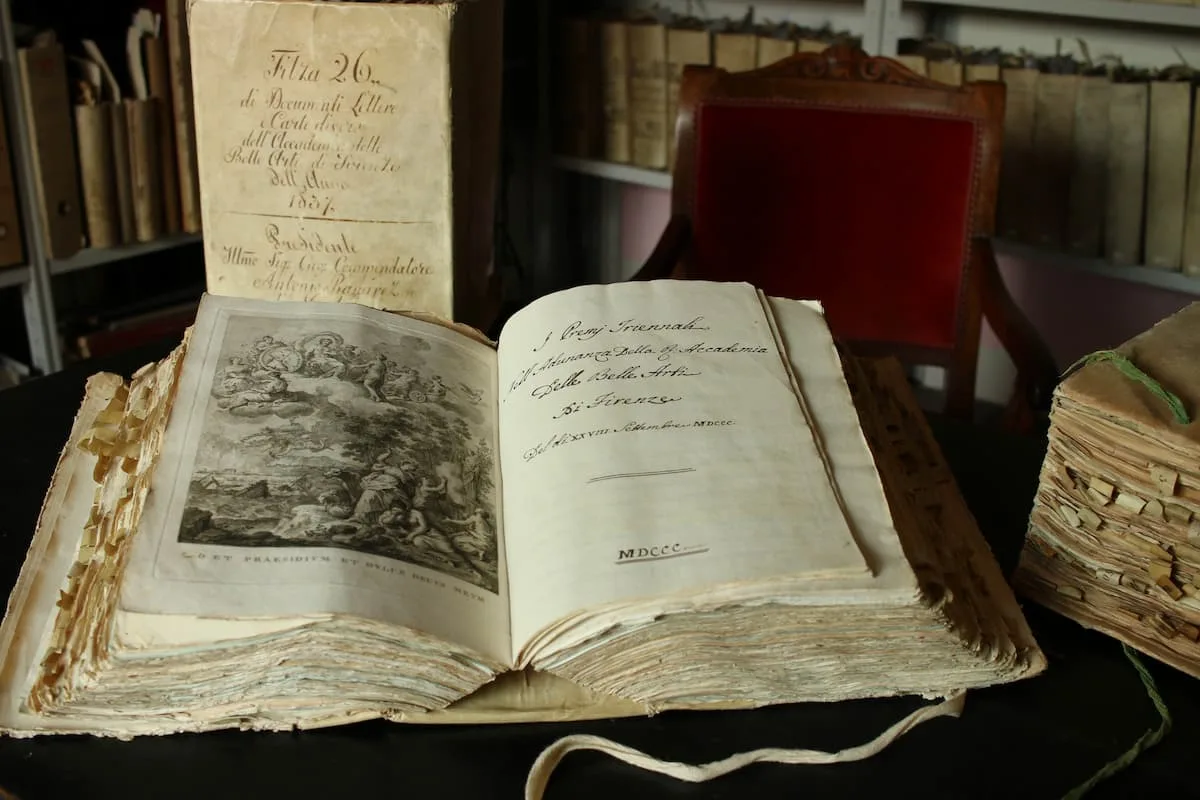 Filza 26..
di Documenti Lettere
e Carte diverse
dell'Accademia delle
Belle Arti di Firenze
dell'Anno
1837.
Presidente
Illmo Sig. Cav. Commendatore
Antonio Ramirez
I Premj Triennali
Nell'Adunanza Della R. Accademia
Delle Belle Arti
Di Firenze
Del dì XXVIII Settembre MDCCC
MDCCC
O ET PRAESIDIVM ET DVLCE DECVS MEVM